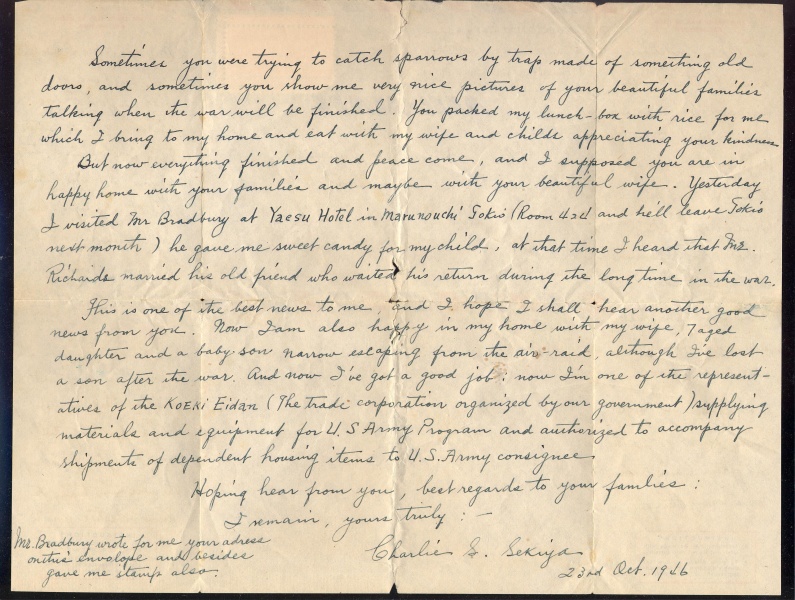 Sometimes you were trying to catch sparrows by trap made of something old
doors, and sometimes you show me very nice pictures of your beautiful families
talking when the war will be finished. You packed my lunch-box with rice for me
which I bring to my home and eat with my wife and childs appreciating your kindness
But now everything finished and peace come, and I supposed you are in
happy home with your families and maybe with your beautiful wife. Yesterday
I visited Mr Bradbury at Yaesu Hotel in Marunouchi Tokio (Room 424 and he'll leave Tokio
next month) he gave me sweet candy for my child, at that time I heard that Mr.
Richards married his old friend who waited his return during the long time in the war.
This is one of the best news to me, and I hope I shall hear another good
news from you. Now I am also happy in my home with my wife, 7 aged
daughter and a baby son narrow escaping from the air-raid, although I've lost
a son after the war. And now I've got a good job. now I'm one of the represent-
atives of the KOEKI Eidan (The trade corporation organized by our government) supplying
materials and equipment for U.S Army Program and authorized to accompany
shipments of dependent housing items to U.S. Army consignee
Hoping hear from you, best regards to your families:
I remain, yours truly:-
Charlie S. Sekiya
23rd Oct. 1946
Mr. Bradbury wrote for me your adress
on this envolope and besides
gave me stamp also.